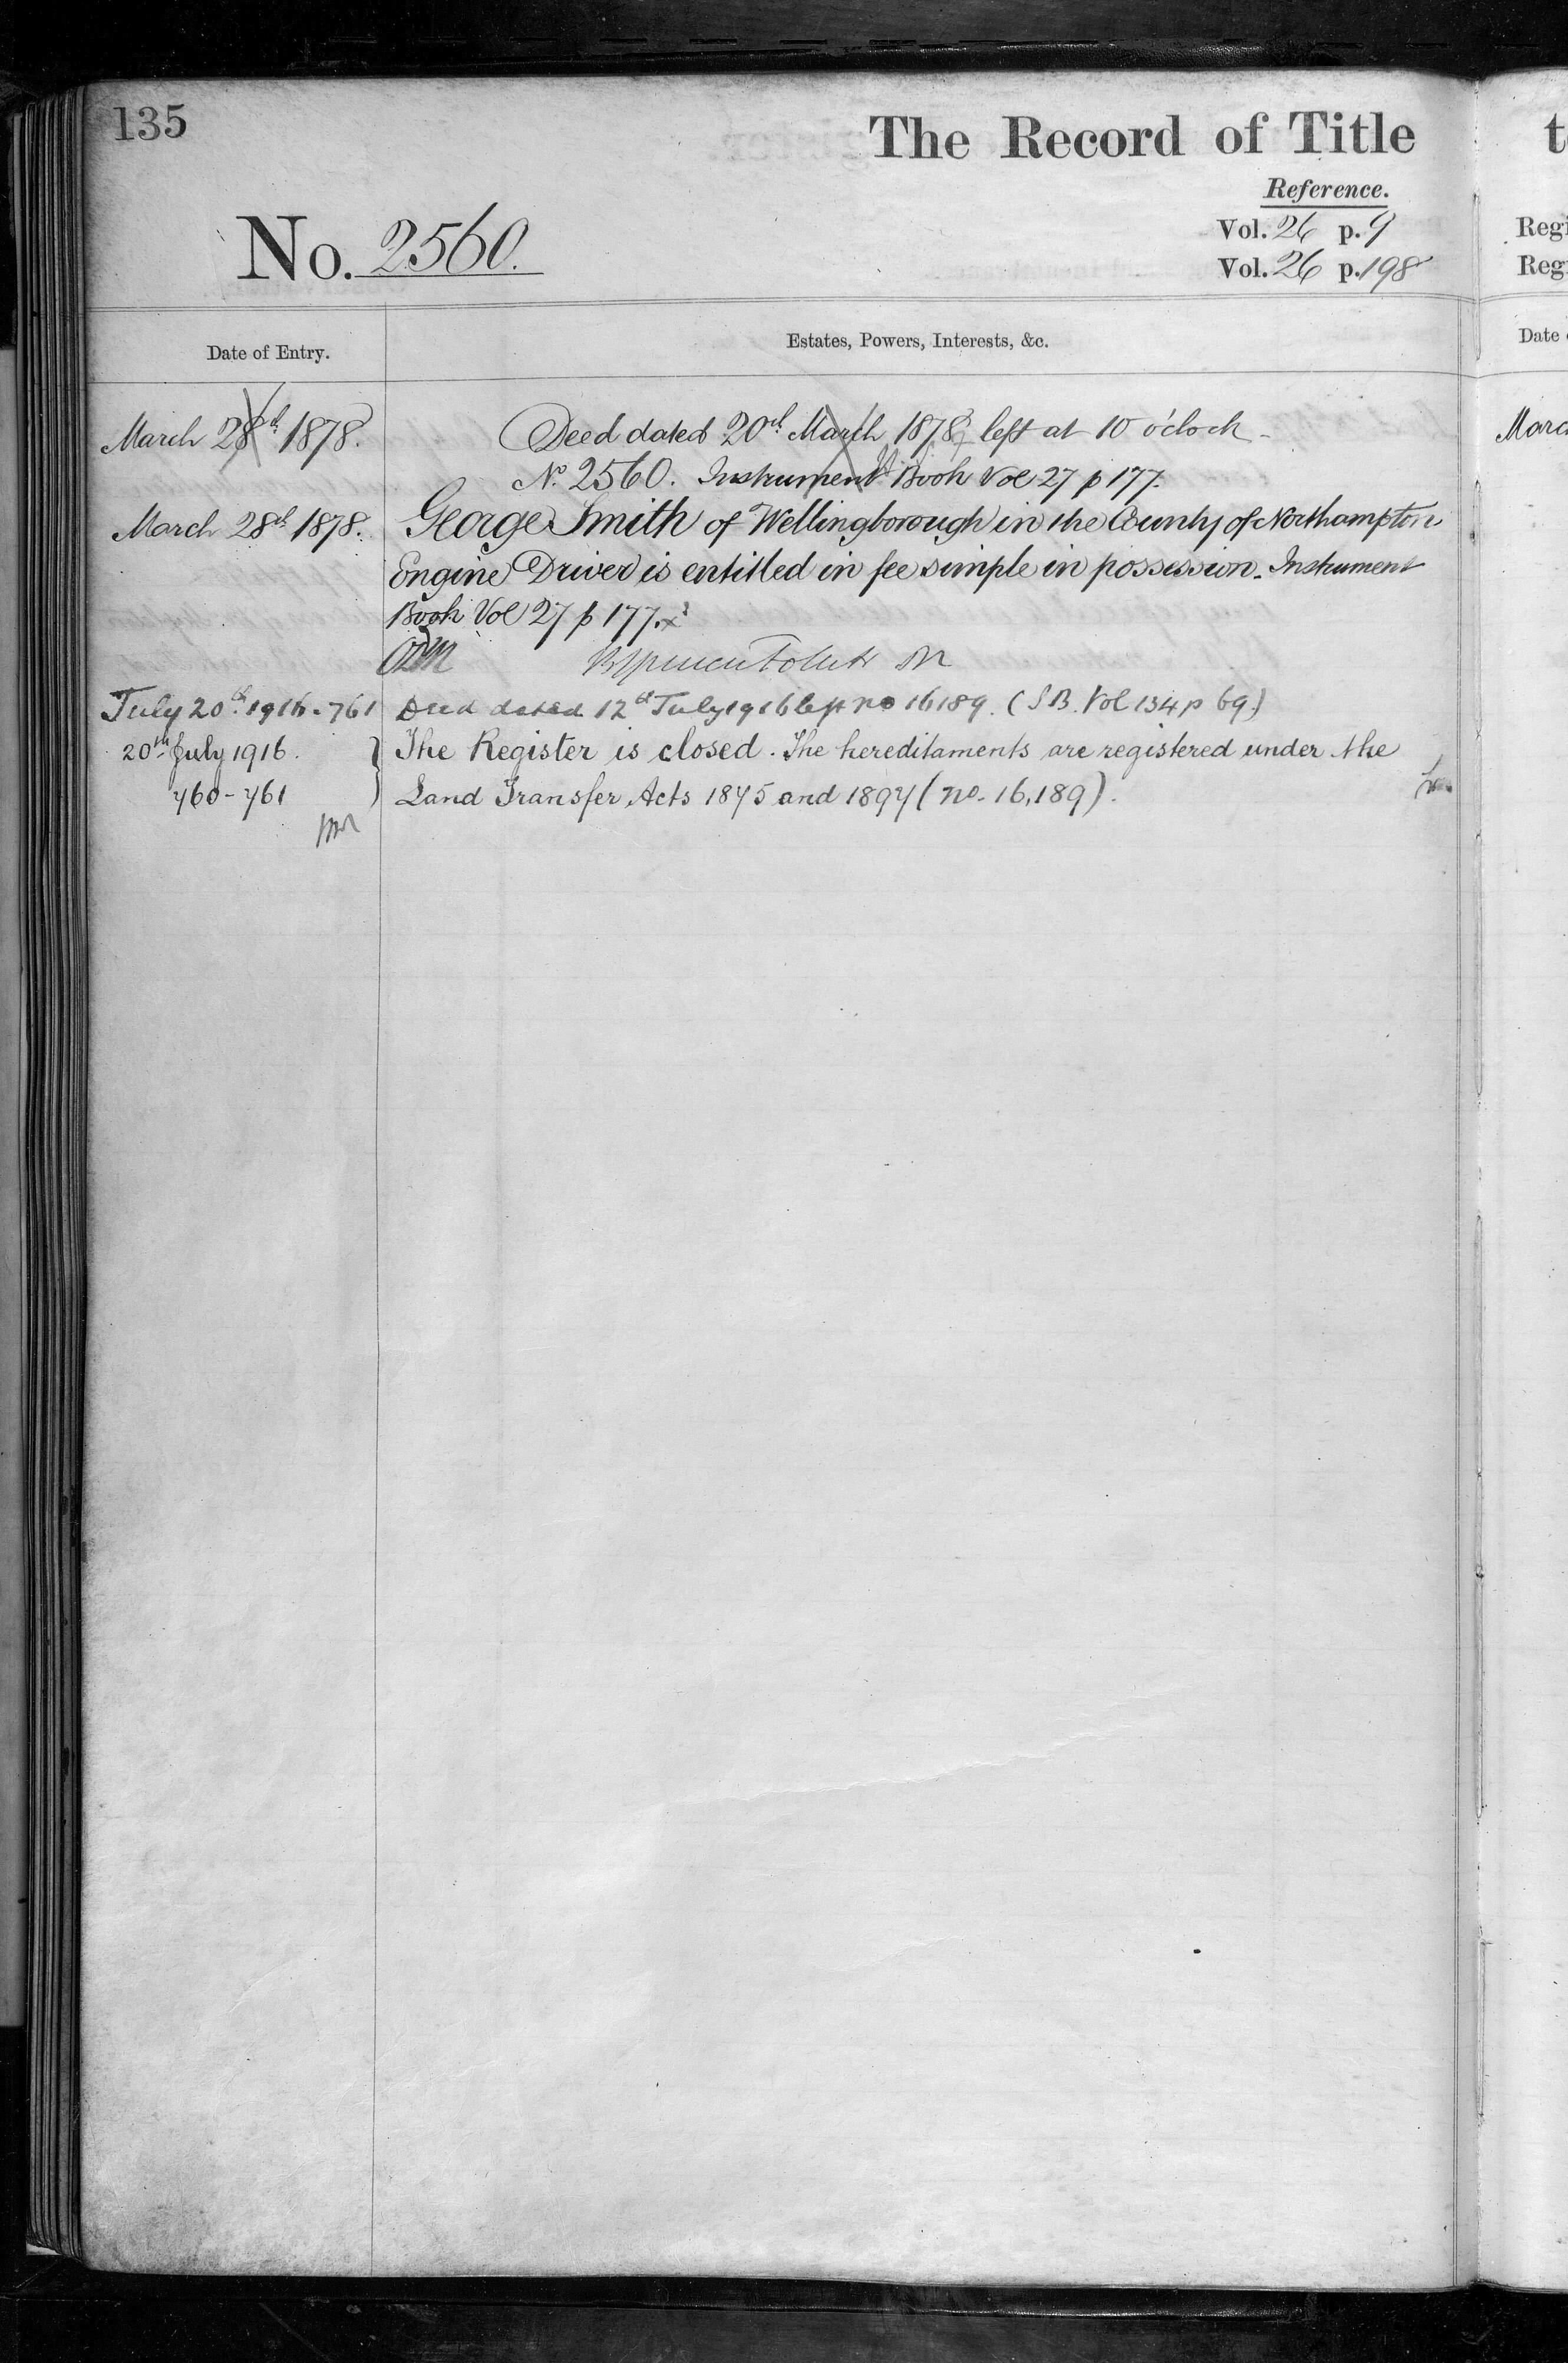 135
The Record of Title
Reference.
No. 2560.
Vol. 26 p. 9
Vol. 26 p. 198
Date of Entry.
Estates, Powers, Interests, &c.
March 28th 1878.
Deed dated 20th March 1878, left at 10 o'clock
No. 2560. Instrument Book Vol 27 p 177.
March 28th 1878.
George Smith of Wellingborough in the County of Northampton
Engine Driver is entitled in fee simple in possession. Instrument
Book Vol 27 p 177.
July 20th 1916 - 761
Deed dated 12th July 1916 left no 16189. (S B. Vol 134 p 69)
20th July 1916.
The Register is closed. The hereditaments are registered under the
760 - 761
Land Transfer Acts 1875 and 1897 (no. 16,189).
t
Regi
Reg
Date
Marc